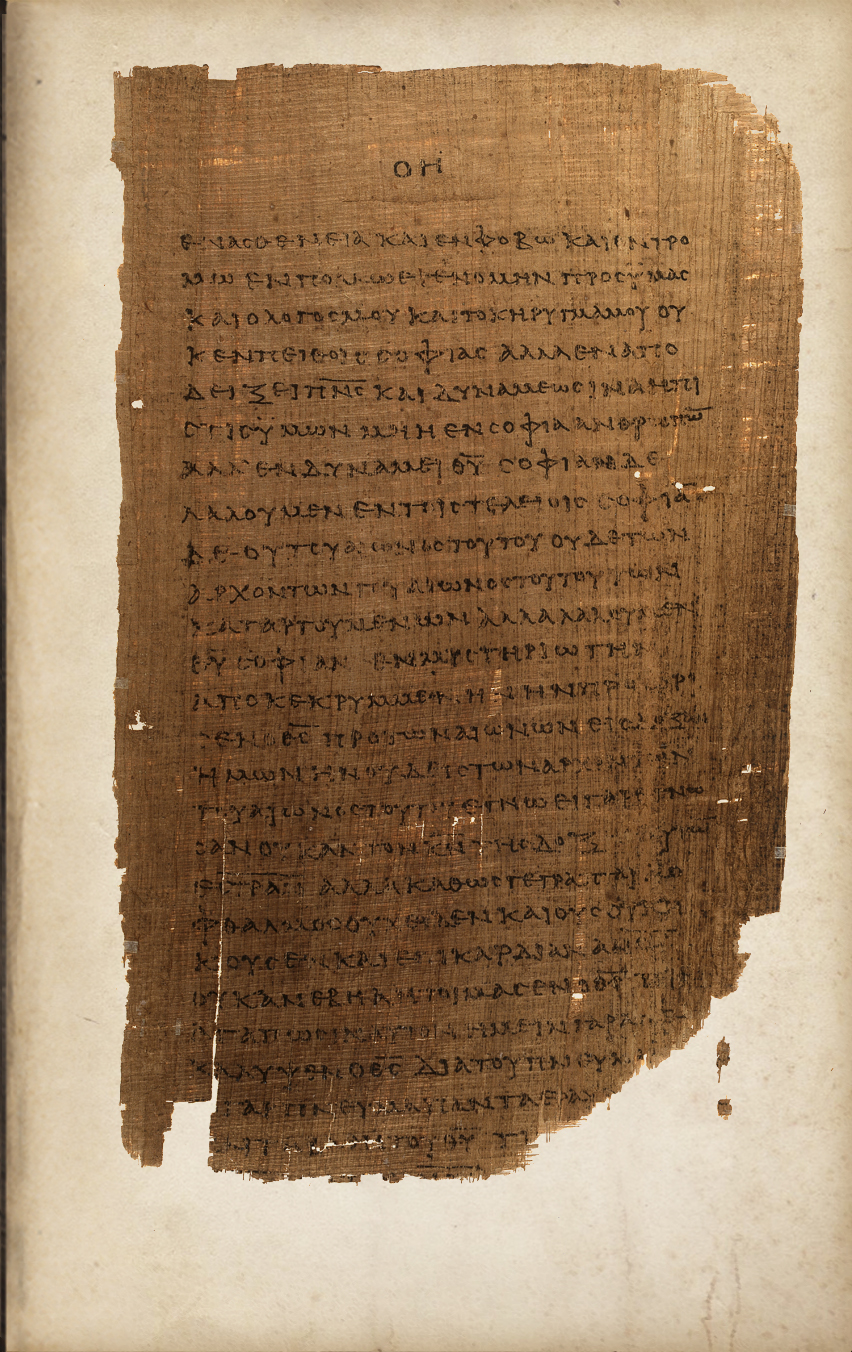 ΟΗ
ΕΝ ΑСΘΕΝΕΙΑ ΚΑΙ ΕΝ ΦΟΒΩ ΚΑΙ ΕΝ ΤΡΟ
ΜΩ ΕΝ ΠΟΛΛΩ ΕΓΕΝΟΜΗΝ ΠΡΟС ΥΜΑС
ΚΑΙ Ο ΛΟΓΟС ΜΟΥ ΚΑΙ ΤΟ ΚΗΡΥΓΜΑ ΜΟΥ ΟΥ
Κ ΕΝ ΠΕΙΘΟΙС СΟΦΙΑС ΑΛΛΑ ΕΝ ΑΠΟ
ΔΕΙΞΕΙ Π̅Ν̅С̅ ΚΑΙ ΔΥΝΑΜΕΩС ΙΝΑ Η ΠΙ
СΤΙС ΥΜΩΝ ΜΗ Η ΕΝ СΟΦΙΑ ΑΝΘΡΩΠΩ̅
ΑΛΛ ΕΝ ΔΥΝΑΜΕΙ Θ̅Υ̅ СΟΦΙΑΝ ΔΕ
ΛΑΛΟΥΜΕΝ ΕΝ ΤΟΙС ΤΕΛΕΙΟΙС СΟΦΙΑ̅
ΔΕ ΟΥ ΤΟΥ ΑΙΩΝΟС ΤΟΥΤΟΥ ΟΥΔΕ ΤΩΝ
ΑΡΧΟΝΤΩΝ ΤΟΥ ΑΙΩΝΟС ΤΟΥΤΟΥ ΤΩΝ
ΚΑΤΑΡΓΟΥΜΕΝΩΝ ΑΛΛΑ ΛΑΛΟΥΜΕΝ
Θ̅Υ̅ СΟΦΙΑΝ ΕΝ ΜΥСΤΗΡΙΩ ΤΗΝ
ΑΠΟΚΕΚΡΥΜΜΕΝΗΝ ΗΝ ΠΡΟΩΡΙ
СΕΝ Ο Θ̅С̅ ΠΡΟ ΤΩΝ ΑΙΩΝΩΝ ΕΙС ΔΟΞΑΝ
ΗΜΩΝ ΗΝ ΟΥΔΕΙС ΤΩΝ ΑΡΧΟΝΤΩΝ
ΤΟΥ ΑΙΩΝΟС ΤΟΥΤΟΥ ΕΓΝΩ ΕΙ ΓΑΡ ΕΓΝΩ
СΑΝ ΟΥΚ ΑΝ ΤΟΝ Κ̅Ν̅ ΤΗС ΔΟΞ
ΑΛΛΑ ΚΑΘΩС ΓΕΓΡΑΠΤΑΙ
ΟΦΘΑΛΜΟС ΟΥΚ ΕΙΔΕΝ ΚΑΙ ΟΥС ΟΥΚ
ΚΑΙ ΕΠΙ ΚΑΡΔΙΑΝ
ΟΥΚ ΑΝΕΒΗ Α ΗΤΟΙΜΑСΕΝ Ο Θ̅С̅ ΤΟΙС
ΑΓΑΠΩСΙΝ ΑΥΤΟΝ ΗΜΕΙΝ ΓΑΡ
ΚΑΛΥΨΕΝ Ο Θ̅С̅ ΔΙΑ ΤΟΥ
ΠΑΝΤΑ
Θ̅Υ̅ ΤΙ